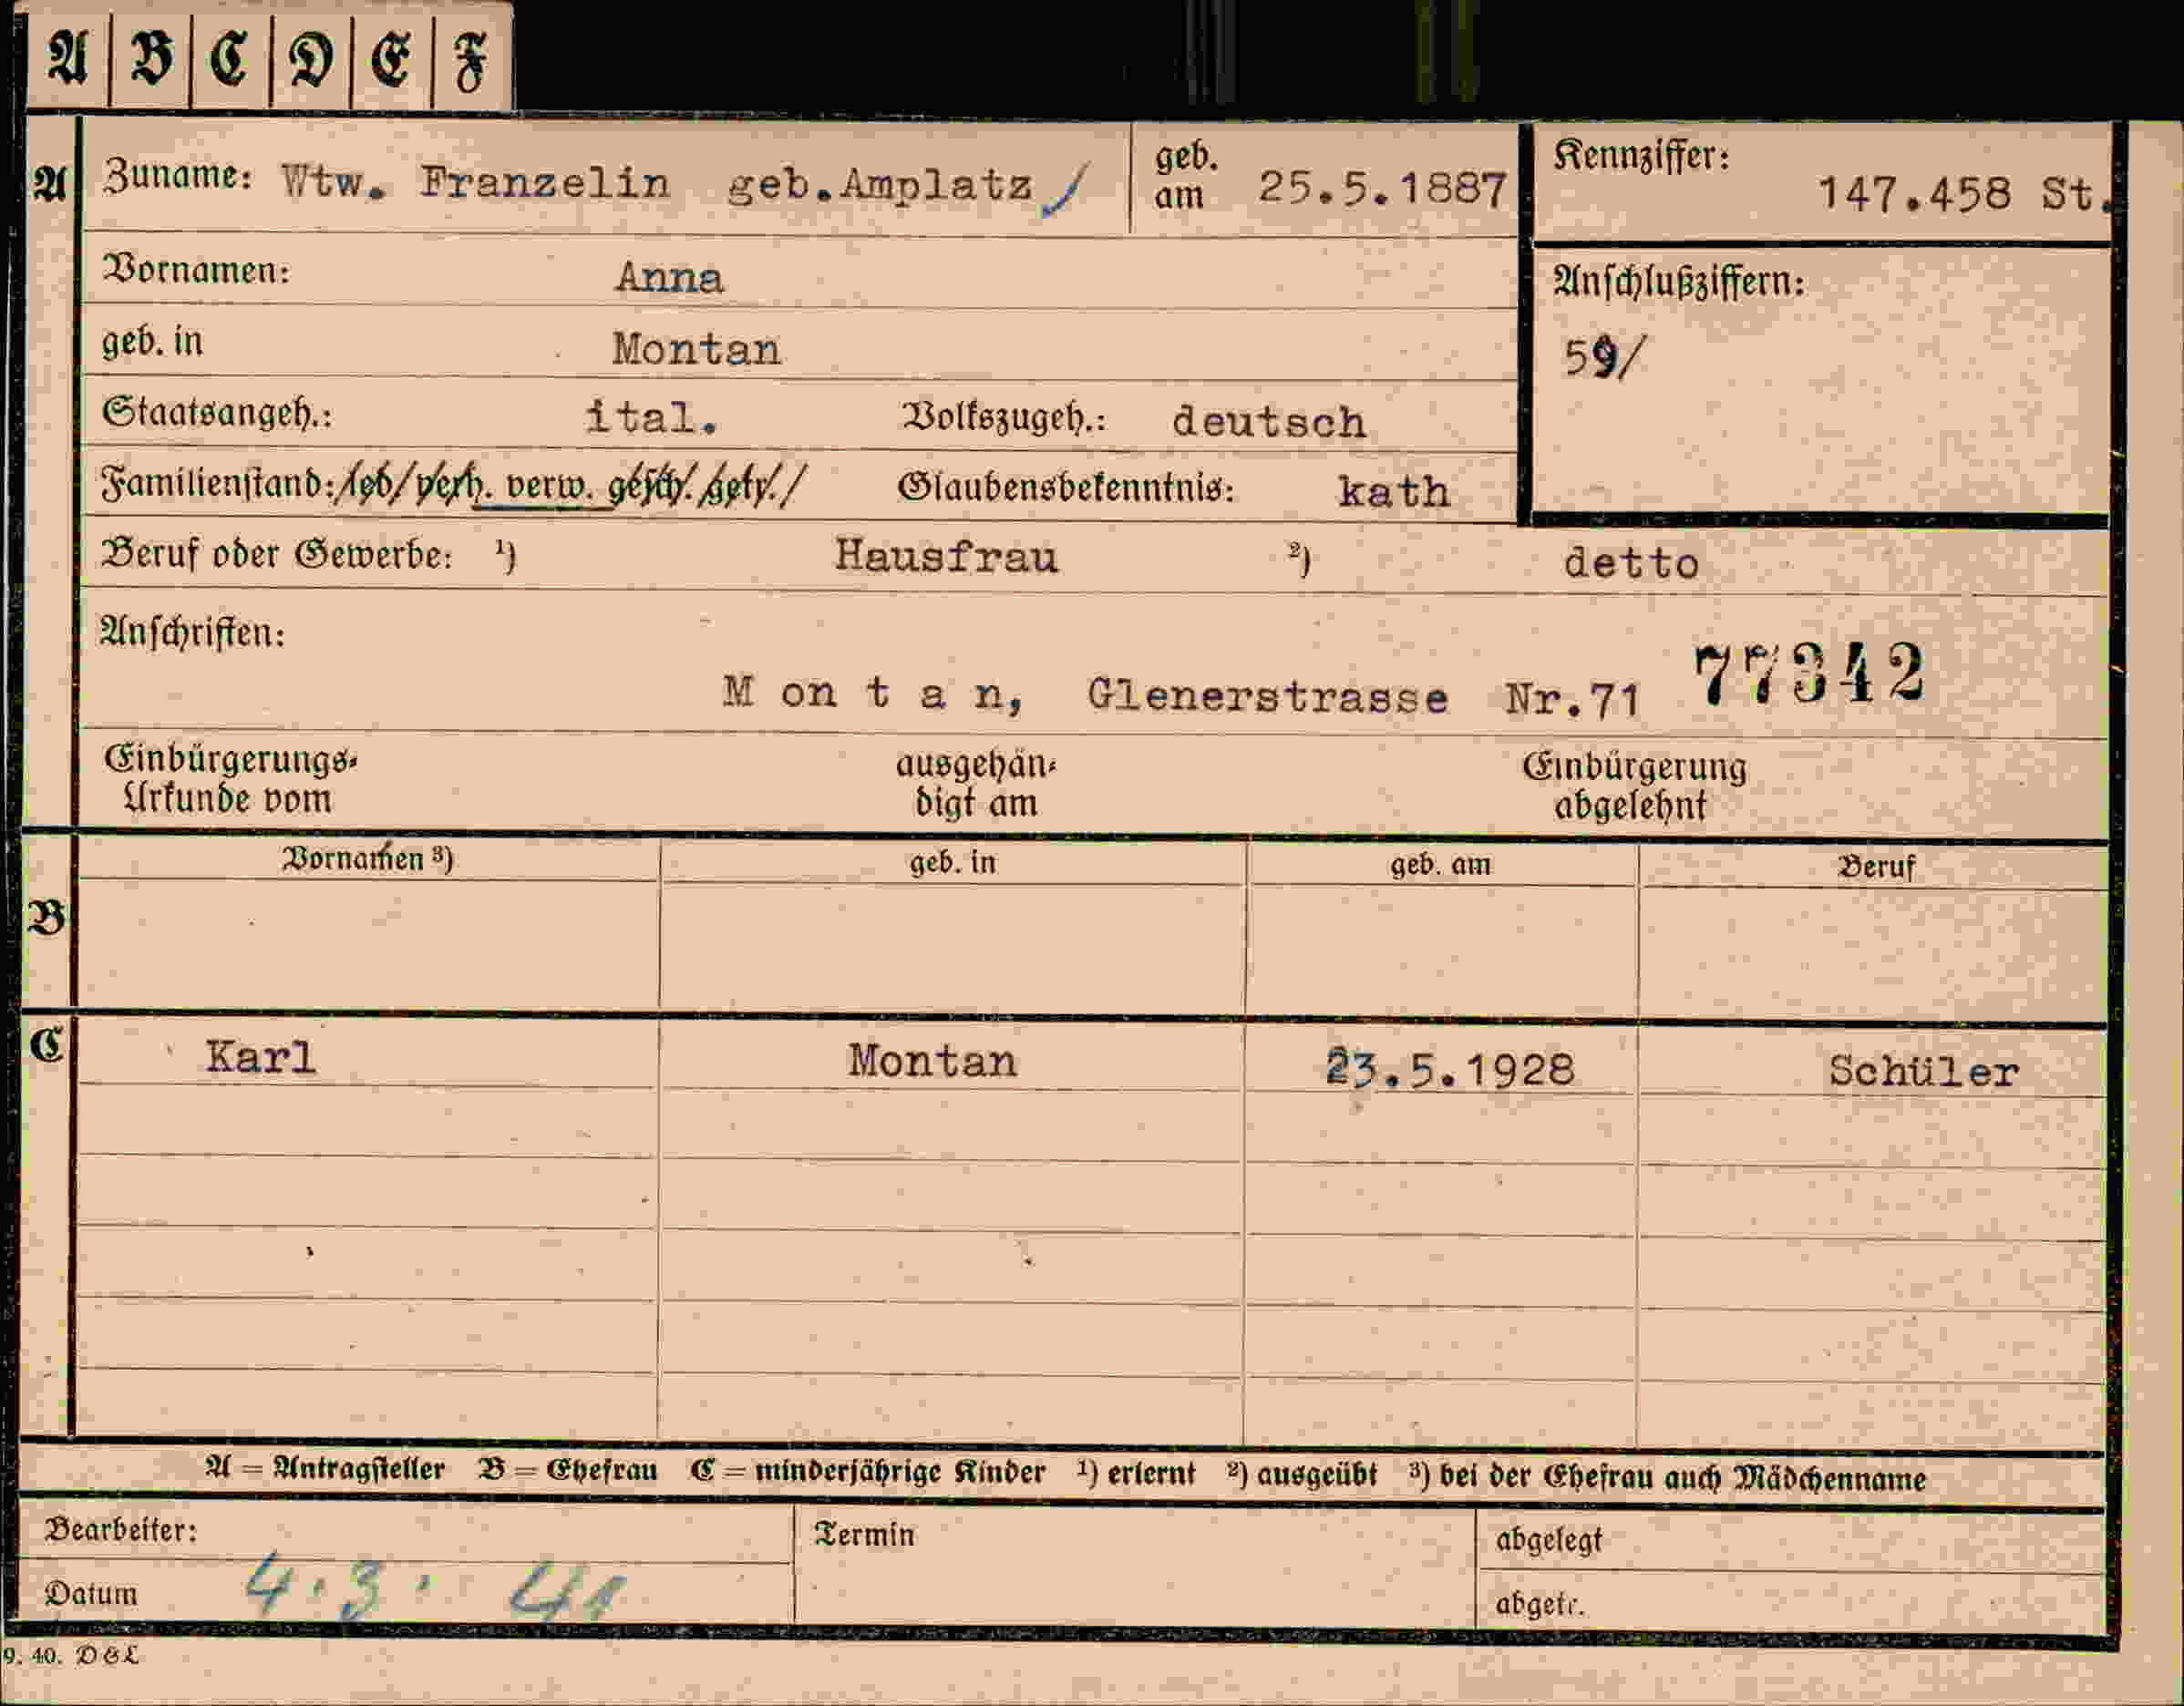 A B C D E F
A Zuname: Wtw. Franzelin geb.Amplatz geb. am 25.5.1887 Kennziffer: 147.458 St.
Vornamen: Anna Anschlußziffern:
geb. in Montan 59/
Staatsangeh.: ital. Volkszugeh.: deutsch
Familienstand: led/verh. verw. gesch. getr. Glaubensbekenntnis: kath
Beruf oder Gewerbe: ¹) Hausfrau ²) detto
Anschriften:
M on t a n, Glenerstrasse Nr.71 77342
Einbürgerungs- ausgehän- Einbürgerung
Urkunde vom digt am abgelehnt
Vornamen ³) geb. in geb. am Beruf
B
C Karl Montan 23.5.1928 Schüler
A = Antragsteller B = Ehefrau C = minderjährige Kinder ¹) erlernt ²) ausgeübt ³) bei der Ehefrau auch Mädchenname
Bearbeiter: Termin abgelegt
Datum 4.3. 41 abgetr.
9. 40. D&L